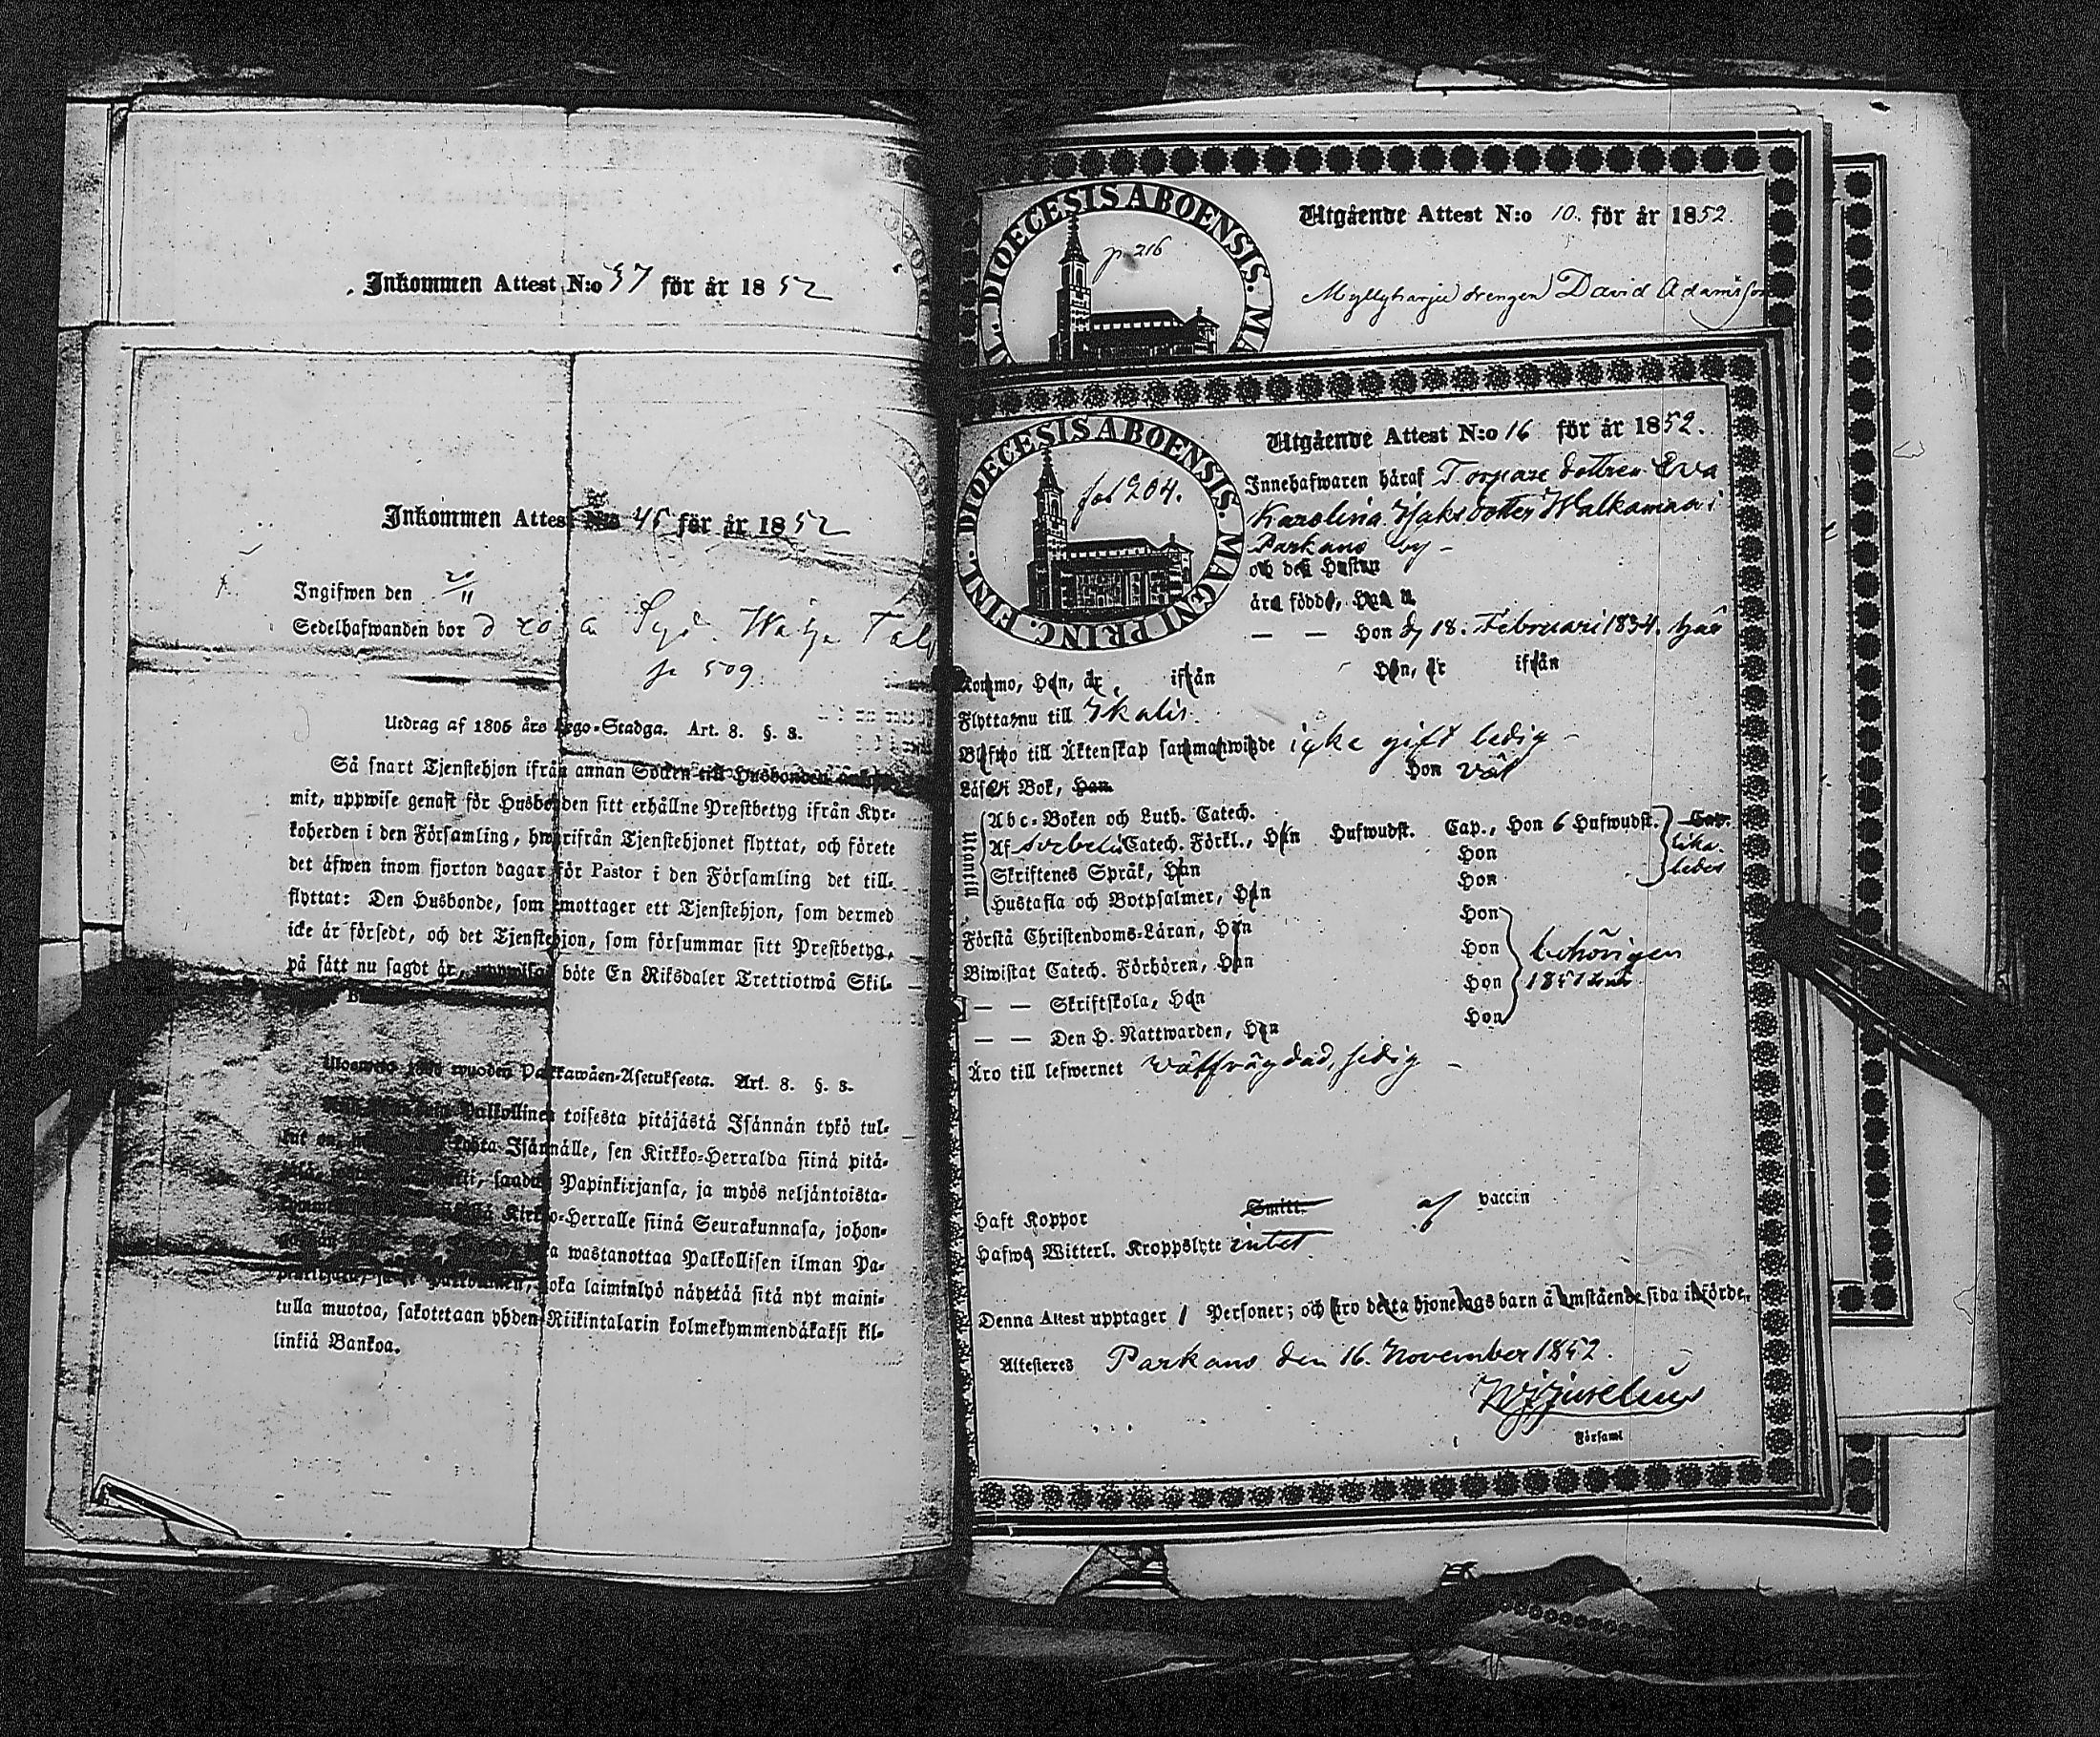 Inkommen Attest N:o 37 för år 1852
Inkommen Attest N:o 45 för år 1852
Ingifwen den 20/11
Sedelhafwanden bor
p. 509.
Utdrag af 1805 års Lego-Stadga. Art. 8. §. 8.
Så snart Tjenstehjon ifrån annan Socken till Husbonden
mit, uppwise genast för Husbonden sitt erhållne Prestbetyg ifrån Kyr-
koherden i den Församling, hwarifrån Tjenstehjonet flyttat, och förete
det äfwen inom fjorton dagar för Pastor i den Församling det till-
flyttat: Den Husbonde, som emottager ett Tjenstehjon, som dermed
icke är försedt, och det Tjenstehjon, som försummar sitt Prestbetyg,
på sätt nu sagdt är, uppwisa, böte En Riksdaler Trettiotwå Skil-
Ulosweto wuoden Palkkawäen-Asetuksesta. Art. 8. §. 8.
Palkollinen toisesta pitäjästä Isännän tykö tul-
Isännälle, sen Kirkko-Herralda siinä pitä-
saadun Papinkirjansa, ja myös neljäntoista-
Kirkko-Herralle siinä Seurakunnasa, johon-
wastanottaa Palkollisen ilman Pa-
joka laiminlyö näyttää sitä nyt maini-
tulla muotoa, sakotetaan yhden Riikintalarin kolmekymmendäkaksi kil-
linkiä Bankoa.
DIOECESIS ABOENSIS. MA
p. 216
Utgående Attest N:o 10. för år 1852.
Myllyharju drengen David Adamsson
DIOECESIS ABOENSIS. MAGNI PRINC. FINL.
fol 204.
Utgående Attest N:o 16 för år 1852.
Innehafwaren häraf Torpare dottren Eva
Karolina Isaksdotter Walkama i
Parkano by -
och des Hustru
äro födde, Han d
— — Hon d 18. Februari 1834. här
Kommo, Han, år ifrån Hon, år ifrån
Flytta nu till Ikalis.
Befwo till Äktenskap sammanwigde icke gift ledig -
Läsa i Bok, Han Hon väl
Utantill
Abc-Boken och Luth. Catech.
Af Svebelii Catech. Förkl., Han Hufwudst. Cap., Hon 6 Hufwudst. Cap.
Skriftenes Språk, Han Hon lika
Hustafla och Botpsalmer, Han Hon ledes
Förstå Christendoms-Läran, Han Hon
Biwistat Catech. Förhören, Han Hon behörigen
— — Skriftskola, Han Hon 1851
— — Den H. Nattwarden, Han Hon
Äro till lefwernet välfrägdad, sedig -
Haft Koppor Smitt. af vaccin
Hafwa Witterl. Kroppslyte intet.
Denna Attest upptager 1 Personer; och äro detta hjonelags barn å omstående sida införde.
Attesteres Parkano den 16. November 1852.
Församl